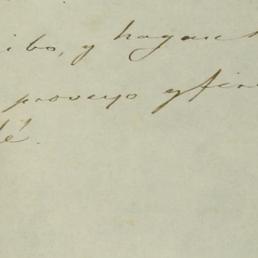 ibo, y hagase
proveyo y fir
fé.